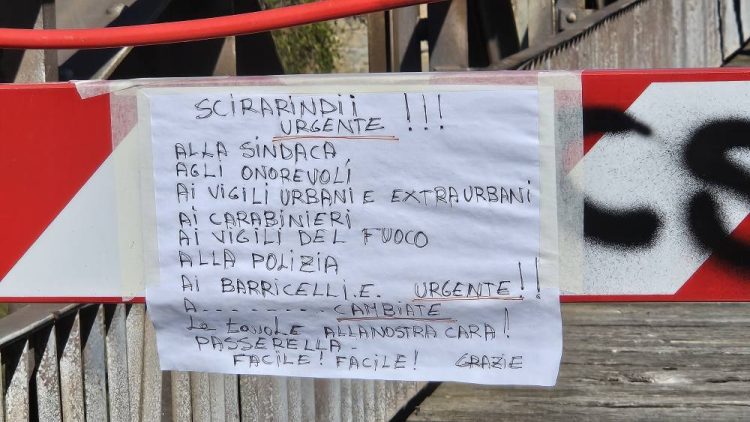 SCIRARINDII !!!
URGENTE
ALLA SINDACA
AGLI ONOREVOLI
Ai VIGILI URBANI E EXTRAURBANI
Ai CARABINIERI
Ai VIGILI DEL FUOCO
ALLA POLIZIA
Ai BARRICELLI.E. URGENTE!!
A......... CAMBIATE
Le tavole ALLA NOSTRA CARA!
PASSERELLA -
FACILE! FACILE! GRAZIE
CS